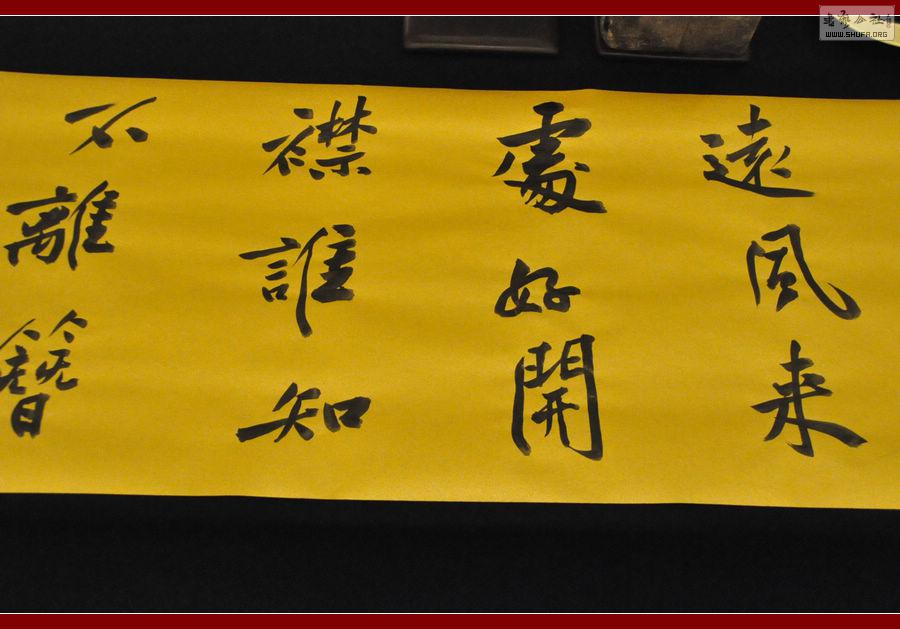 遠風来
處好開
襟誰知
不離簪
書法公社
WWW.SHUFA.ORG